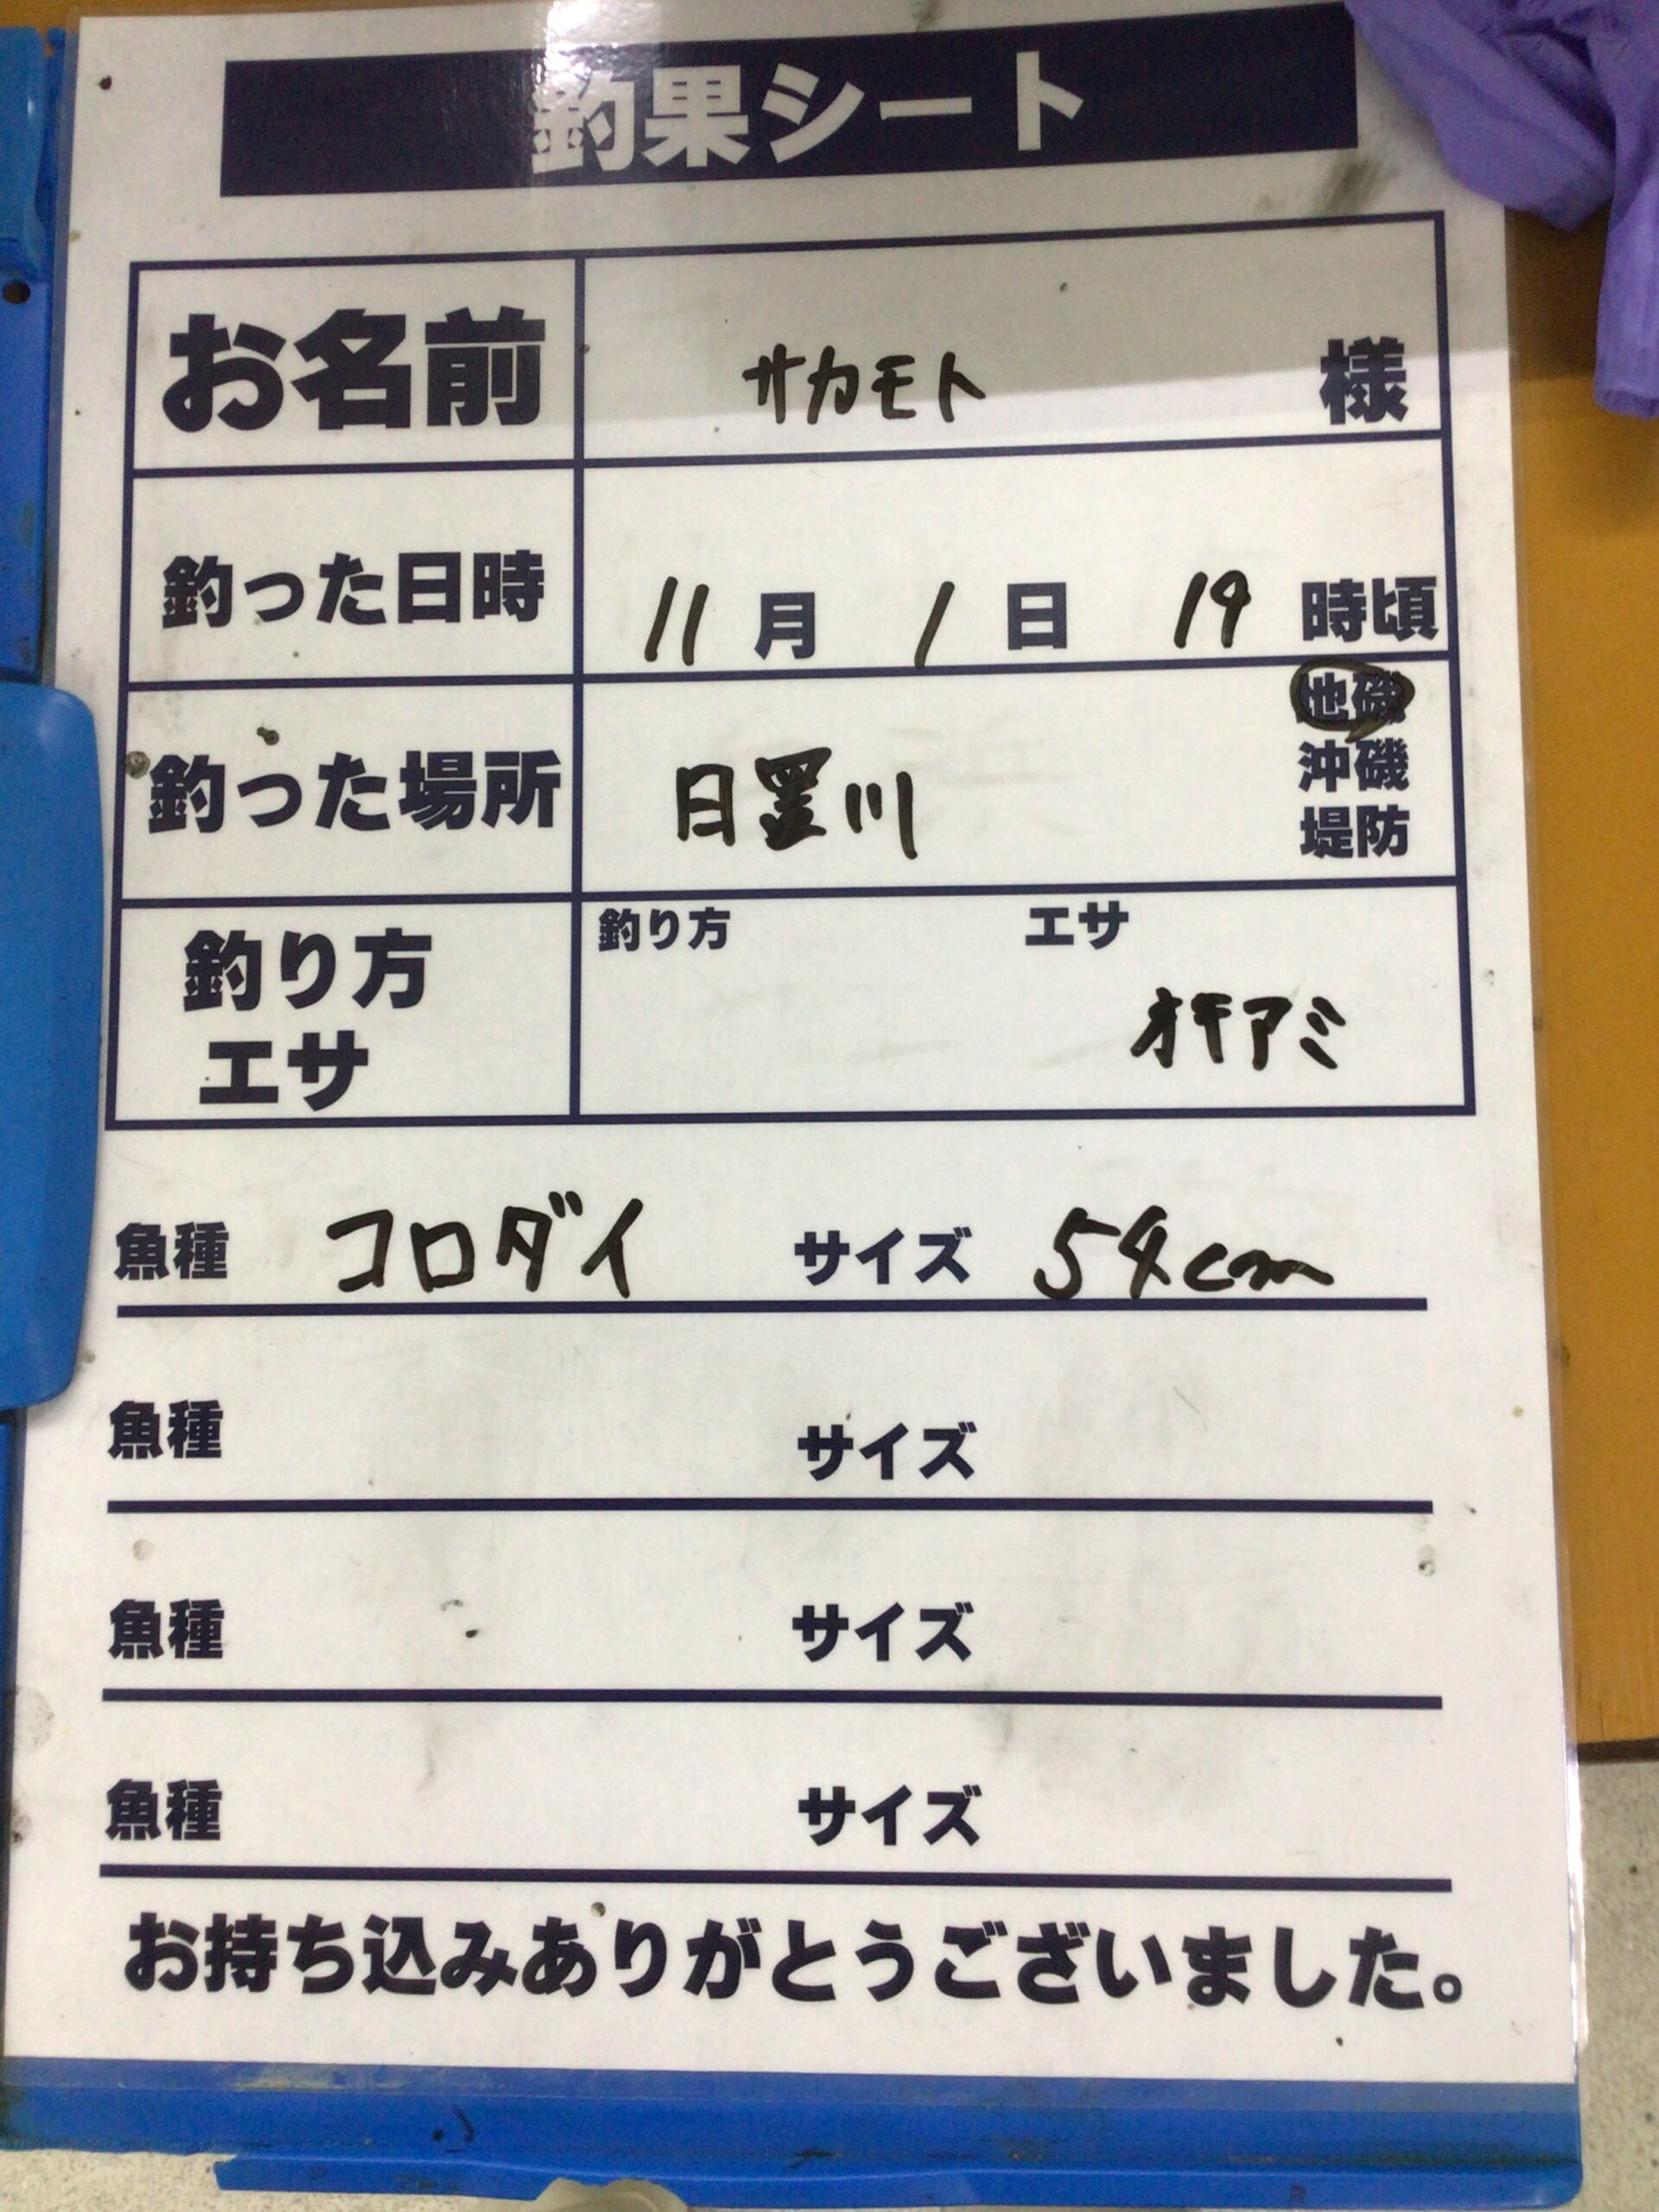 釣果シート
お名前 サカモト 様
釣った日時 11月 1日 19時頃
地磯
釣った場所 日置川 沖磯
堤防
釣り方 エサ
釣り方
エサ オキアミ
魚種 コロダイ サイズ 54cm
魚種 サイズ
魚種 サイズ
魚種 サイズ
お持ち込みありがとうございました。